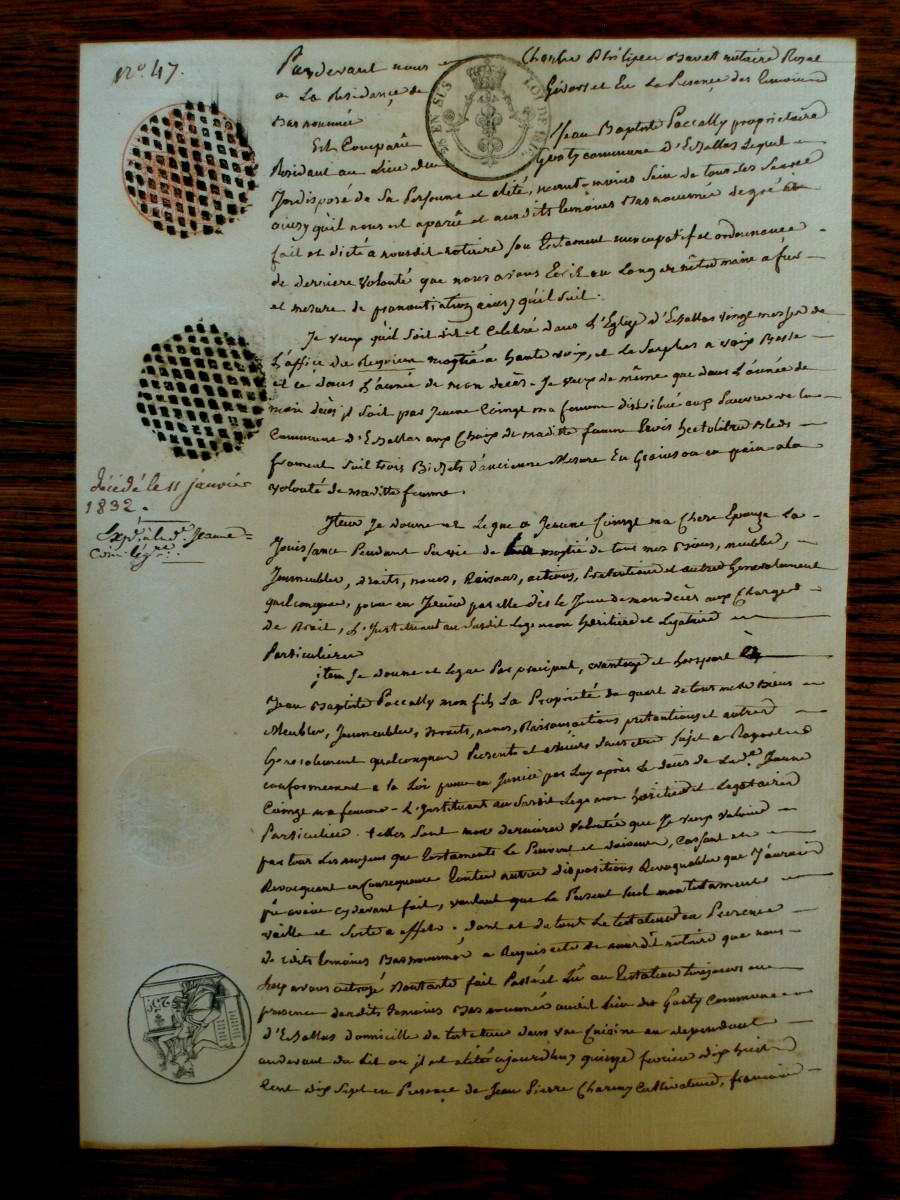 N° 47.
Pardevant nous Charles Philipe Bavet notaire Royal
a La Residance de Givors et En La Presence des temoins
Bas nommés
Est Comparû Jean Baptiste Paccally propriétaire
Residant au Lieu du Gouty commune d'Echallas Lequel
Indisposé de sa Personne et alité, neant-moins Sain de tous Ses Sences
ainsy qu'il nous est aparû et auxdits temoins Bas nommés de gré a
fait et dicté a nousdit notaire son testament nuncupatif et ordonnance
de derniere volonté que nous avons Ecrit au Long de nôtre main a fur
et mesure de prononciation ainsy qu'il suit.
Je veux qu'il soit dit et Celebré dans L'Eglise d'Echallas vingt messes de
L'office de Requiem moytié a haute voix, et le Surplus a voix Basse
et ce dans L'année de mon decès. Je veux de même que dans L'année de
mon decès il soit par Jeanne Coinge ma femme distribué aux Pauvres de la
Commune d'Echallas aux Choix de maditte femme trois Hectolitres Bled
froment soit trois Bichets d'ancienne Mesure En Grains ou en pain a la
volonté de maditte femme.
décédé le 11 janvier
1832.
Exp. d. Jeanne
Coin lég.re
Item Je donne et Legue a Jeanne Coinge ma Chere Epouze La
Jouissance Pendant Sa vie de La moytié de tous mes Biens, meubles,
Immeubles, droits, noms, Raisons, actions, Pretentions et autres Generalement
quelconques, pour en Jouir par elle dès le Jour de mon décès aux Charges
de Droit, L'Instituant au Susdit Legs mon Héritière et Legataire
Particuliere
item Je donne et Legue Par preciput, avantage et hors part a
Jean Baptiste Paccally mon fils La Propriété du quart de tous mes Biens
Meubles, Immeubles, droits, noms, Raisons actions pretentions et autres
Generalement quelconques Presents et avenirs sans etre Sujet a Raport
conformement a la Loi pour en Jouir par Luy après Le deces de La d.e Jeanne
Coinge ma femme - L'Instituant au Susdit Legs mon heritier et Legataire
Particulier. telles Sont mes dernieres volontés que Je veux valoir
par tous Les moyens que testaments Le Peuvent et doivent, Cassant et
Revocquant en Consequence toutes autres dispositions Revoquables que J'aurais
pû avoir cydevant fait, voulant que Le Present Seul mon testament
vaille et Sorte a effets. dont et de tout Le testateur en Presence
desdits temoins Bas nommés a Requis acte de nousdit notaire que nous
luy avons octroyé Nontante fait Passé et Lû au testateur toujours en
presence desdits temoins Bas nommés audit Lieu du Gouty Commune
d'Echallas domicille du testateur dans une Cuisine en dependant
audevant du Lit ou il est alité aujourdhuy quinze fevrier dix huit
Cent dix Sept en Presence de Jean Pierre Charny Cultivateur, francois